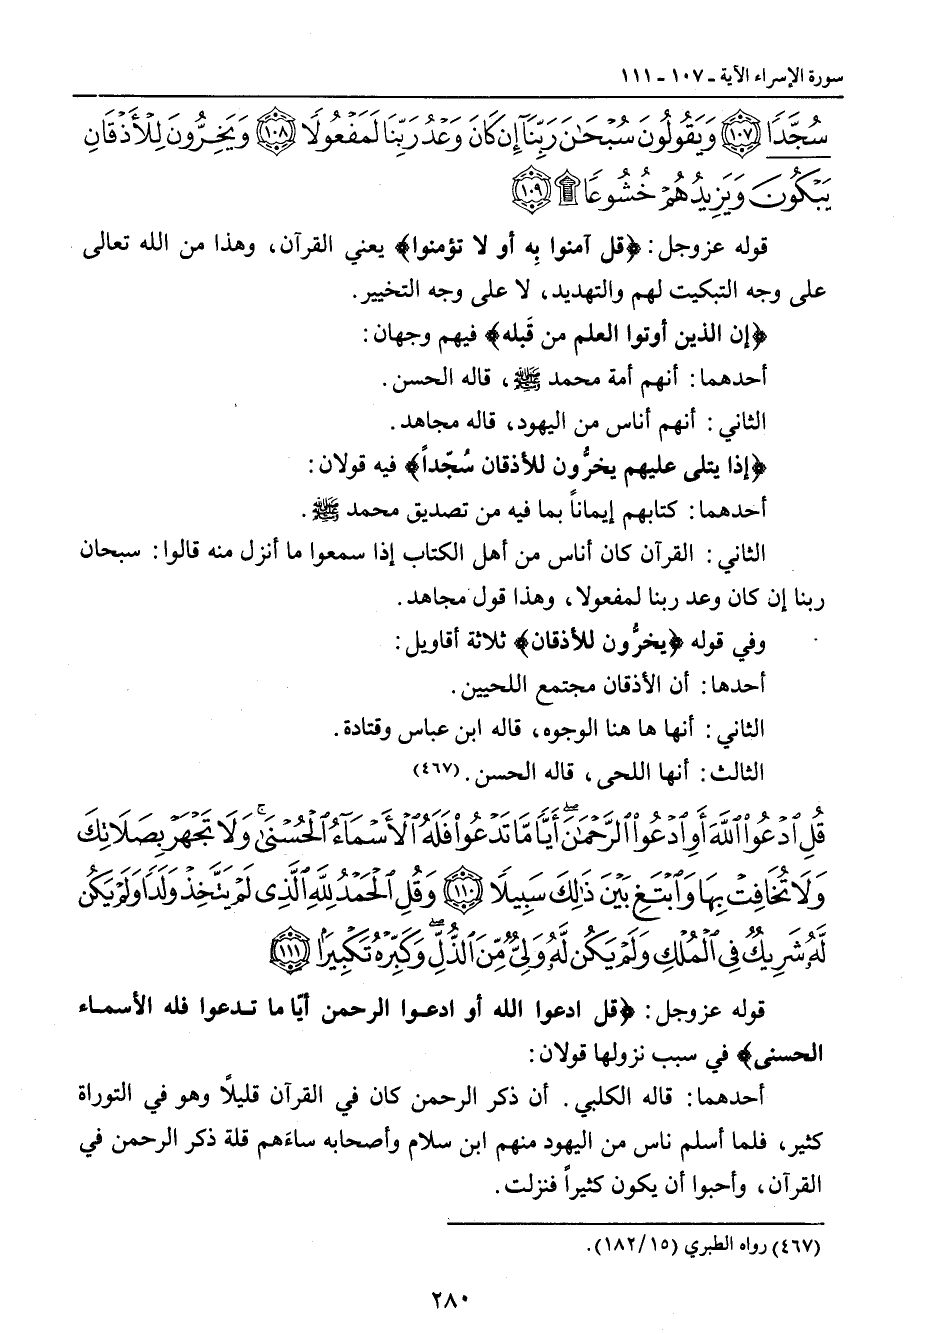 سورة الإسراء الآية ـ ١٠٧ ـ ١١١
سُجَّدًا ﴿١٠٧﴾ وَيَقُولُونَ سُبْحَٰنَ رَبِّنَآ إِن كَانَ وَعْدُ رَبِّنَا لَمَفْعُولًا ﴿١٠٨﴾ وَيَخِرُّونَ لِلْأَذْقَانِ
يَبْكُونَ وَيَزِيدُهُمْ خُشُوعًا ۩ ﴿١٠٩﴾
قوله عزوجل: ﴿قل آمنوا بِه أو لا تؤمنوا﴾ يعني القرآن، وهذا من الله تعالى
على وجه التبكيت لهم والتهديد، لا على وجه التخيير.
﴿إن الذين أوتوا العلم من قَبله﴾ فيهم وجهان:
أحدهما: أنهم أمة محمد ﷺ، قاله الحسن.
الثاني: أنهم أناس من اليهود، قاله مجاهد.
﴿إذا يتلى عليهم يخرُّون للأذقان سُجّداً﴾ فيه قولان:
أحدهما: كتابهم إيماناً بما فيه من تصديق محمد ﷺ.
الثاني: القرآن كان أناس من أهل الكتاب إذا سمعوا ما أنزل منه قالوا: سبحان
ربنا إن كان وعد ربنا لمفعولا، وهذا قول مجاهد.
وفي قوله ﴿يخرُّون للأذقان﴾ ثلاثة أقاويل:
أحدها: أن الأذقان مجتمع اللحيين.
الثاني: أنها ها هنا الوجوه، قاله ابن عباس وقتادة.
الثالث: أنها اللحى، قاله الحسن. (٤٦٧)
قُلِ ٱدْعُوا۟ ٱللَّهَ أَوِ ٱدْعُوا۟ ٱلرَّحْمَٰنَ ۖ أَيًّا مَّا تَدْعُوا۟ فَلَهُ ٱلْأَسْمَآءُ ٱلْحُسْنَىٰ ۚ وَلَا تَجْهَرْ بِصَلَاتِكَ
وَلَا تُخَافِتْ بِهَا وَٱبْتَغِ بَيْنَ ذَٰلِكَ سَبِيلًا ﴿١١٠﴾ وَقُلِ ٱلْحَمْدُ لِلَّهِ ٱلَّذِى لَمْ يَتَّخِذْ وَلَدًا وَلَمْ يَكُن
لَّهُۥ شَرِيكٌ فِى ٱلْمُلْكِ وَلَمْ يَكُن لَّهُۥ وَلِىٌّ مِّنَ ٱلذُّلِّ ۖ وَكَبِّرْهُ تَكْبِيرًۢا ﴿١١١﴾
قوله عزوجل: ﴿قل ادعوا الله أو ادعوا الرحمن أيّا ما تدعوا فله الأسماء
الحسنى﴾ في سبب نزولها قولان:
أحدهما: قاله الكلبي. أن ذكر الرحمن كان في القرآن قليلًا وهو في التوراة
كثير، فلما أسلم ناس من اليهود منهم ابن سلام وأصحابه ساءَهم قلة ذكر الرحمن في
القرآن، وأحبوا أن يكون كثيراً فنزلت.
(٤٦٧) رواه الطبري (١٨٢/١٥).
٢٨٠